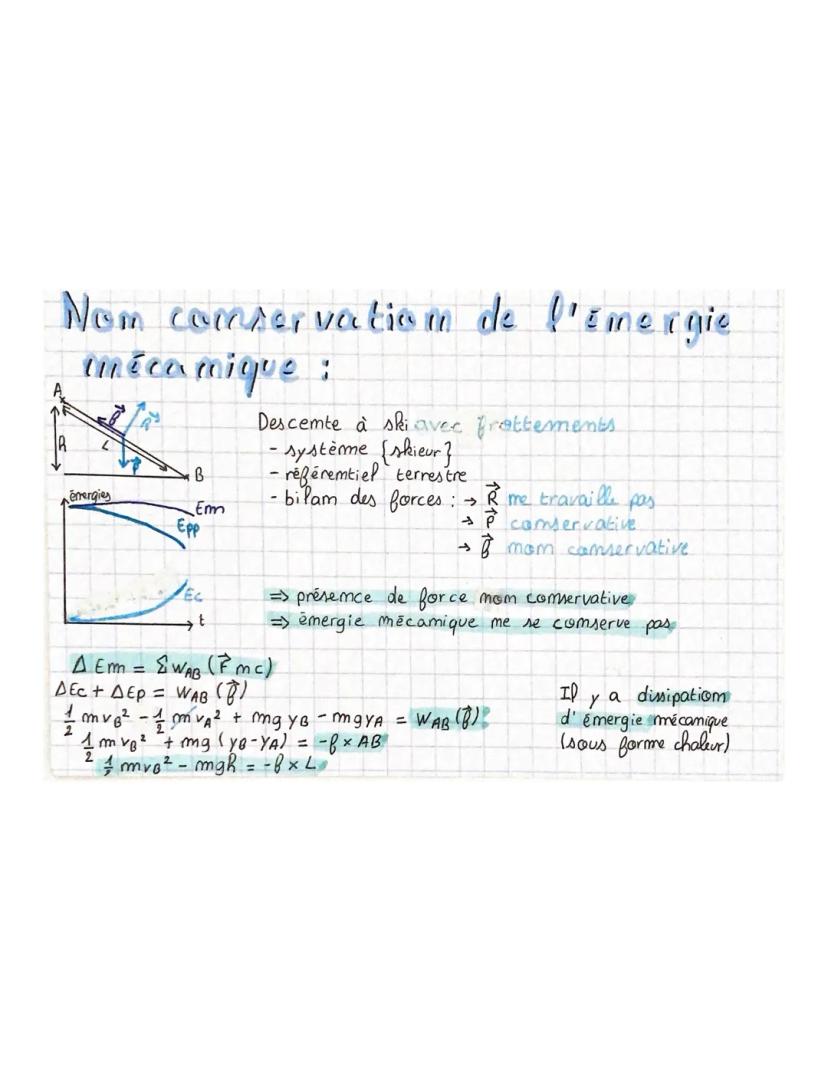 Non conservation de l'énergie
mécanique :
A
f R
h L P
B
énergies
Em
Epp
Ec
t
Descente à ski avec frottements
- système {skieur}
- référentiel terrestre
- bilan des forces : → R⃗ ne travaille pas
→ P⃗ conservative
→ f⃗ non conservative
⇒ présence de force non conservative
⇒ énergie mécanique ne se conserve pas
Δ Em = Σ W_AB (F⃗ nc)
ΔEc + ΔEp = W_AB (f⃗)
½ m v_B² - ½ m v_A² + mg y_B - mg y_A = W_AB (f⃗)
½ m v_B² + mg (y_B - y_A) = -f × AB
½ m v_B² - mgh = -f × L
Il y a dissipation
d'énergie mécanique
(sous forme chaleur)